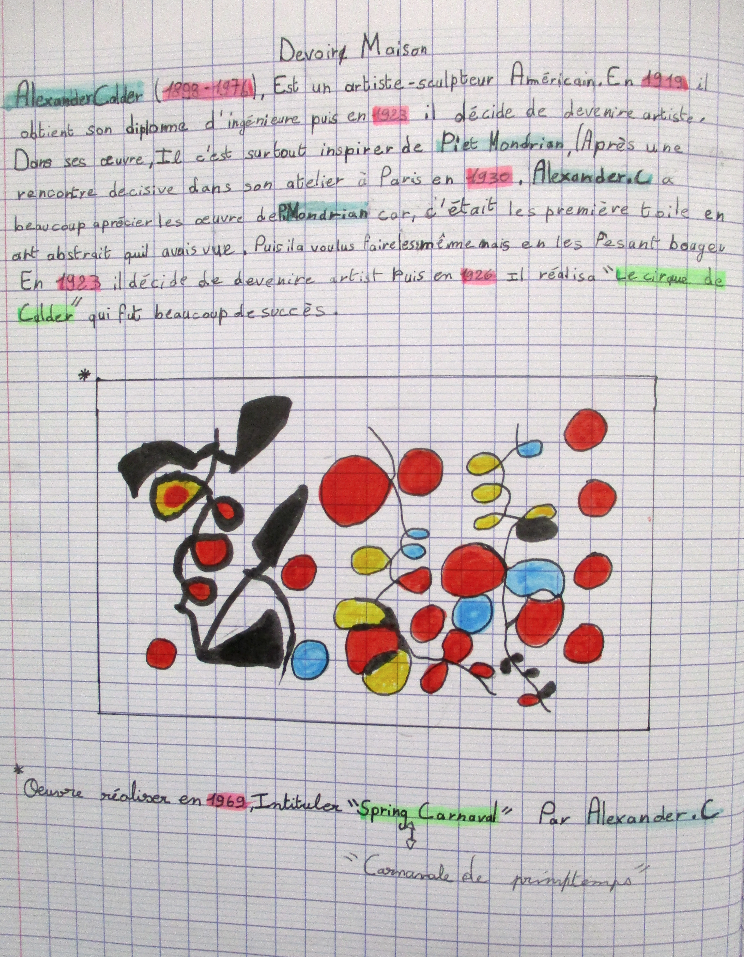 Devoir Maison
Alexander Calder (1898-1976), Est un artiste-sculpteur Américain. En 1919 il
obtient son diplome d'ingénieure puis en 1923 il décide de devenire artiste.
Dans ses œuvre, Il c'est surtout inspirer de Piet Mondrian, (Après une
rencontre decisive dans son atelier à Paris en 1930. Alexander.C a
beaucoup aprécier les oeuvre de P.Mondrian car, c'était les première toile en
art abstrait quil avais vue. Puis il a voulus faire les même mais en les fesant bouger
En 1923 il décide de devenire artist Puis en 1926 Il réalisa "Le cirque de
Calder" qui fut beaucoup de succès.
*
* Oeuvre réaliser en 1969, Intituler "Spring Carnaval" Par Alexander.C
"Carnavale de primptemps"